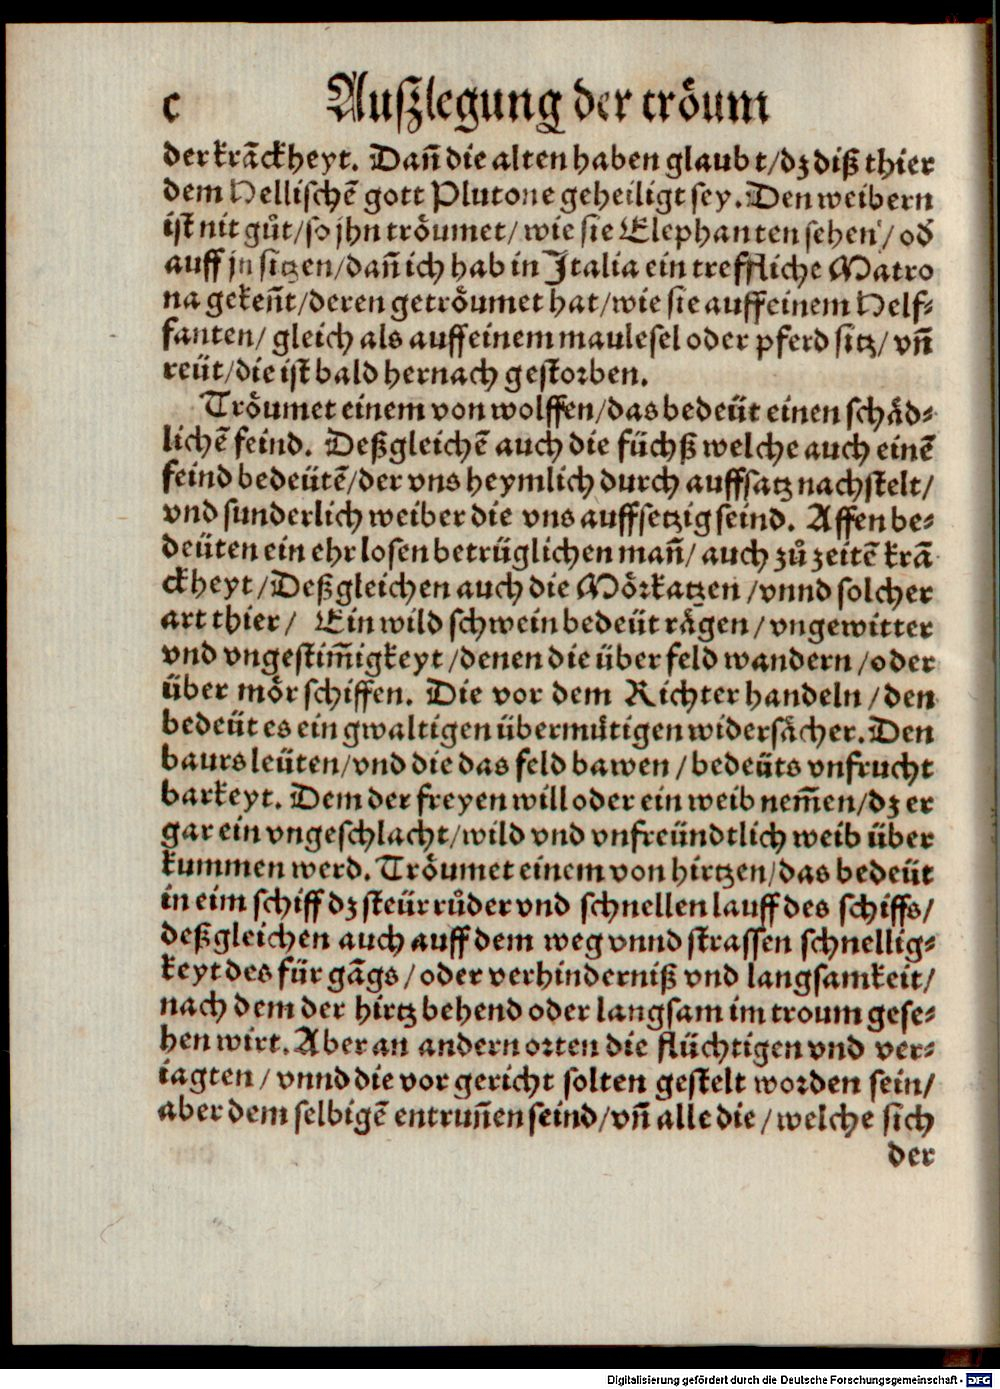 c Auſzlegung der troͤum
der krãckheyt. Dañ die alten haben glaubt/dz diß thier
dem Helliſchẽ gott Plutone geheiligt ſey. Den weibern
iſt nit guͦt/ſo jhn troͤumet/wie ſie Elephanten ſehen/od̕
auff jn ſitzen/dañ ich hab in Italia ein treffliche Matro
na gekeñt/deren getroͤumet hat/wie ſie auff einem Helf⸗
fanten/gleich als auff einem mauleſel oder pferd ſitz/vñ
reüt/die iſt bald hernach geſtorben.
Troͤumet einem von wolffen/das bedeüt einen ſchaͤd⸗
lichẽ feind. Deßgleichẽ auch die füchß welche auch einẽ
feind bedeütẽ/der vns heymlich durch auffſatz nachſtelt/
vnd ſunderlich weiber die vns auffſetzig ſeind. Affen be⸗
deüten ein ehrloſen betrüglichen mañ/auch zuͦ zeitẽ krã
ckheyt/Deßgleichen auch die Moͤrkatzen/vnnd ſolcher
art thier/ Ein wild ſchwein bedeüt raͤgen/vngewitter
vnd vngeſtim̃igkeyt/denen die über feld wandern/oder
über moͤr ſchiffen. Die vor dem Richter handeln/den
bedeüt es ein gwaltigen übermuͤtigen widerſaͤcher. Den
baurs leüten/vnd die das feld bawen/bedeüts vnfrucht
barkeyt. Dem der freyen will oder ein weib nem̃en/dz er
gar ein vngeſchlacht/wild vnd vnfreündtlich weib über
kummen werd. Troͤumet einem von hirtzen/das bedeüt
in eim ſchiff dz ſteür ruͦder vnd ſchnellen lauff des ſchiffs/
deßgleichen auch auff dem weg vnnd ſtraſſen ſchnellig⸗
keyt des für gãgs/oder verhinderniß vnd langſamkeit/
nach dem der hirtz behend oder langſam im troum geſe⸗
hen wirt. Aber an andern orten die flüchtigen vnd ver⸗
iagten/vnnd die vor gericht ſolten geſtelt worden ſein/
aber dem ſelbigẽ entruñen ſeind/vñ alle die/welche ſich
der
Digitalisierung gefördert durch die Deutsche Forschungsgemeinschaft - DFG